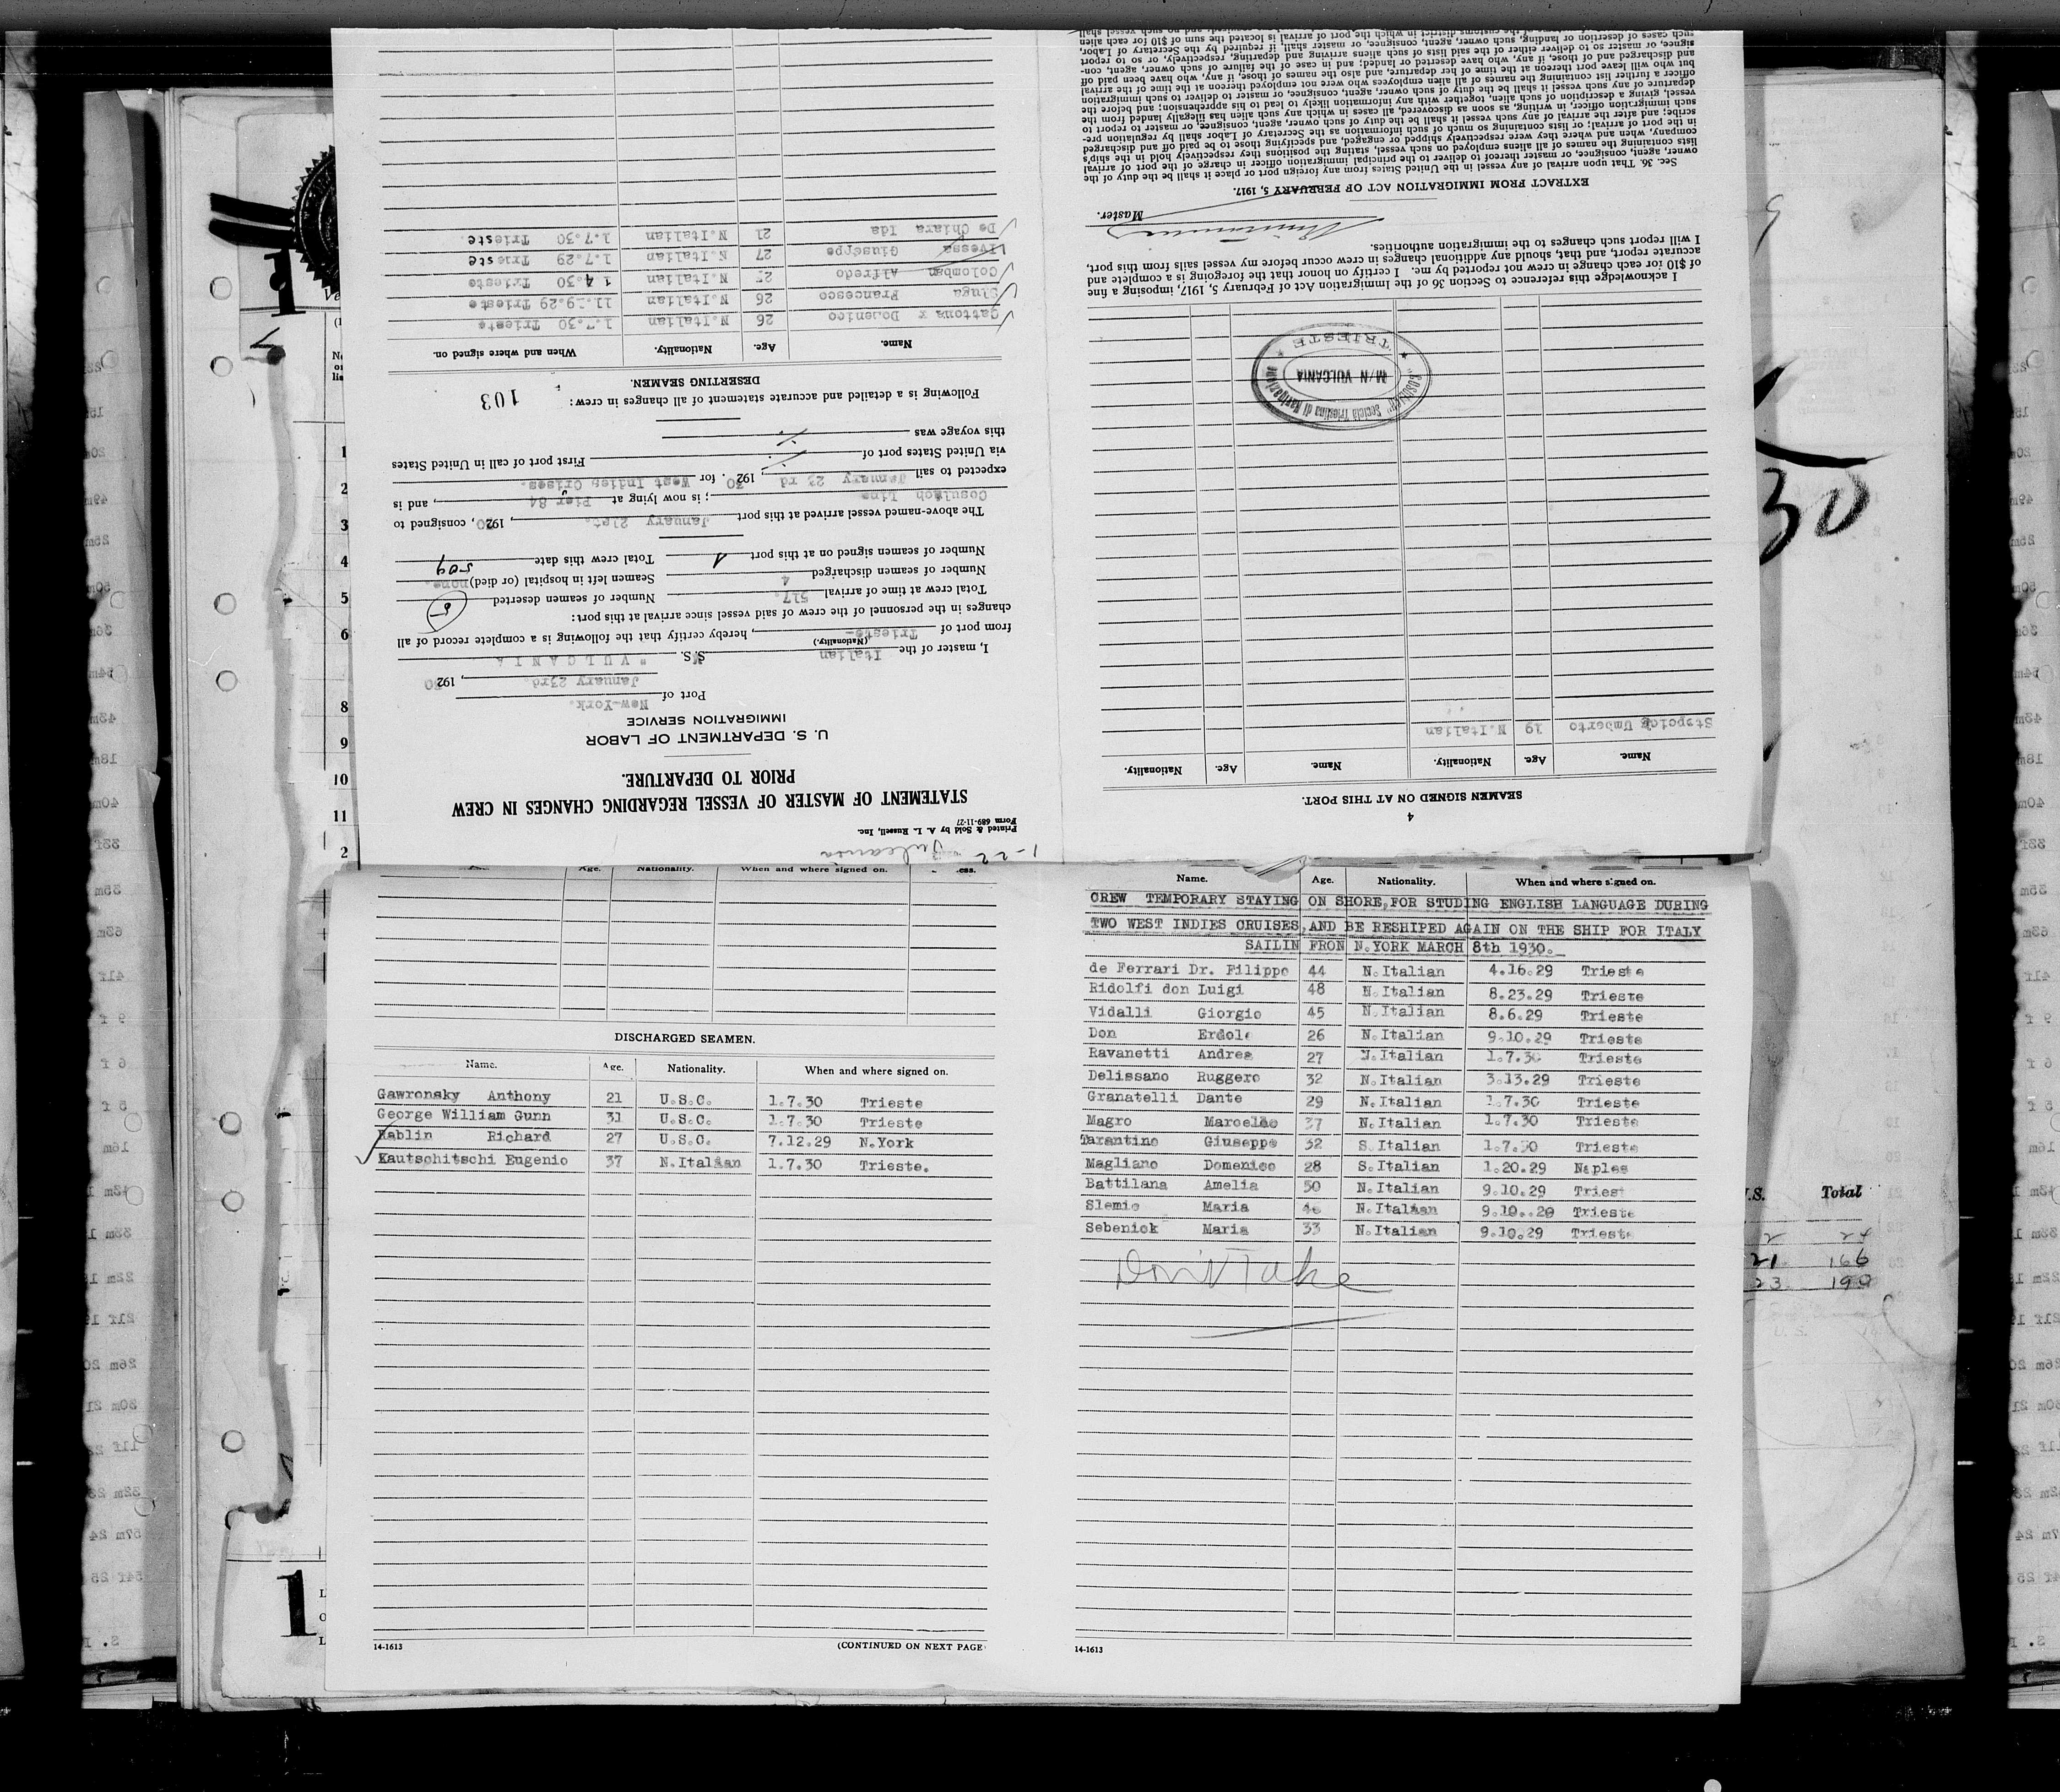 1-22 Vulcania
Printed & Sold by A. L. Russell, Inc.
Form 689-11-27
STATEMENT OF MASTER OF VESSEL REGARDING CHANGES IN CREW
PRIOR TO DEPARTURE.
U. S. DEPARTMENT OF LABOR
IMMIGRATION SERVICE
Port of New-York.
January 23rd, 1920 30
I, master of the Italian S.S. "VULCANIA
(Nationality.)
from port of Trieste-, hereby certify that the following is a complete record of all
changes in the personnel of the crew of said vessel since arrival at this port:
Total crew at time of arrival 517. Number of seamen deserted 5
Number of seamen discharged 4 Seamen left in hospital (or died) none.
Number of seamen signed on at this port 1 Total crew this date 509
The above-named vessel arrived at this port January 21st., 1920, consigned to
Cosulich Line; is now lying at Pier 84, and is
expected to sail January 23 rd, 192 30. for West Indies Crises.
via United States port of First port of call in United States
this voyage was
Following is a detailed and accurate statement of all changes in crew: 103
DESERTING SEAMEN.
Name. Age. Nationality. When and where signed on.
Gattona x Domenico 26 N.Italian 1.7.30 Trieste
Sluga Francesco 26 N.Italian 11.19.29 Trieste
Colomban Alfredo 25 N.Italian 1 4.30 Trieste
Ivessa Giuseppe 27 N.Italian 1.7.29 Trieste
De Chiara Ida 21 N.Italian 1.7.30 Trieste.
4
SEAMEN SIGNED ON AT THIS PORT.
Name. Age. Nationality. Name. Age. Nationality.
Umberto 19 N.Italian
"COSULICH" Società Triestina di Navigazione
M/N VULCANIA
TRIESTE
I acknowledge this reference to Section 36 of the Immigration Act of February 5, 1917, imposing a fine
of $10 for each change in crew not reported by me. I certify on honor that the foregoing is a complete and
accurate report, and that, should any additional changes in crew occur before my vessel sails from this port,
I will report such changes to the immigration authorities.
Master.
EXTRACT FROM IMMIGRATION ACT OF FEBRUARY 5, 1917.
Sec. 36. That upon arrival of any vessel in the United States from any foreign port or place it shall be the duty of the
owner, agent, consignee, or master thereof to deliver to the principal immigration officer in charge of the port of arrival
lists containing the names of all aliens employed on such vessel, stating the positions they respectively hold in the ship's
company, when and where they were respectively shipped or engaged, and specifying those to be paid off and discharged
in the port of arrival; or lists containing so much of such information as the Secretary of Labor shall by regulation pre-
scribe; and after the arrival of any such vessel it shall be the duty of such owner, agent, consignee, or master to report to
such immigration officer, in writing, as soon as discovered, all cases in which any such alien has illegally landed from the
vessel, giving a description of such alien, together with any information likely to lead to his apprehension; and before the
departure of any such vessel it shall be the duty of such owner, agent, consignee, or master to deliver to such immigration
officer a further list containing the names of all alien employees who were not employed thereon at the time of the arrival
but who will leave port thereon at the time of her departure, and also the names of those, if any, who have been paid off
and discharged and of those, if any, who have deserted or landed; and in case of the failure of such owner, agent, con-
signee, or master so to deliver either of the said lists of such aliens arriving and departing, respectively, or so to report
such cases of desertion or landing, such owner, agent, consignee, or master shall, if required by the Secretary of Labor,
customs district in which the port of arrival is located the sum of $10 for each alien
Age. Nationality. When and where signed on.
DISCHARGED SEAMEN.
Name. Age. Nationality. When and where signed on.
Gawronsky Anthony 21 U.S.C. 1.7.30 Trieste
George William Gunn 31 U.S.C. 1.7.30 Trieste
Rablin Richard 27 U.S.C. 7.12.29 N.York
Kautschitschi Eugenio 37 N.Italian 1.7.30 Trieste.
14-1613 (CONTINUED ON NEXT PAGE
Name. Age. Nationality. When and where signed on.
CREW TEMPORARY STAYING ON SHORE,FOR STUDING ENGLISH LANGUAGE DURING
TWO WEST INDIES CRUISES,AND BE RESHIPED AGAIN ON THE SHIP FOR ITALY
SAILIN FRON N.YORK MARCH 8th 1930.
de Ferrari Dr. Filippo 44 N.Italian 4.16.29 Trieste
Ridolfi don Luigi 48 N.Italian 8.23.29 Trieste
Vidalli Giorgio 45 N.Italian 8.6.29 Trieste
Don Erdole 26 N.Italian 9.10.29 Trieste
Ravanetti Andrea 27 N.Italian 1.7.30 Trieste
Delissano Ruggero 32 N.Italian 3.13.29 Trieste
Granatelli Dante 29 N.Italian 1.7.30 Trieste
Magro Marcello 37 N.Italian 1.7.30 Trieste
Tarantino Giuseppe 32 S.Italian 1.7.30 Trieste
Magliano Domenico 28 S.Italian 1.20.29 Naples
Battilana Amelia 50 N.Italian 9.10.29 Triest
Slemic Maria N.Italian 9.10..29 Trieste
Sebenick Maria 33 N.Italian 9.10.29 Trieste
Don't Take
14-1613
1
2
3
4
5
6
8
9
10
11
2
30
.S. Total
2 24
21 166
23 190
1